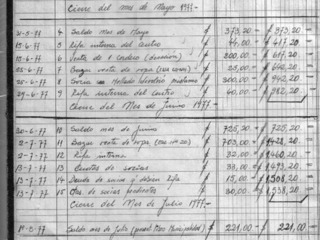 Cierre del mes de Mayo 1977-
31-5-77 4 Saldo mes de Mayo 373,20 - 373,20
15-6-77 5 Rifa interna del centro 44,00 - 417,20
15-6-77 6 Venta de 1 cordero (donación) 200,00 - 617,20
25-6-77 7 Bazar venta de ropa 25,00 - 642,20
28-6-77 8 300,00 - 942,20
29-6-77 9 Rifa interna del centro 40,00 - 982,20
Cierre del Mes de Junio 1977-
30-6-77 10 Saldo mes de Junio 725,20 - 725,20
2-7-77 11 Bazar venta de ropa 703,00 - 1428,20
12-7-77 12 Rifa interna 32,00 - 1460,20
13-7-77 13 Cuotas de socias 33,00 - 1493,20
13-7-77 14 Deuda de socias 15,00 - 1508,20
13-7-77 15 de socias 30,00 - 1538,20
Cierre del Mes de Julio 1977-
Saldo mes de Julio 221,00 - 221,00